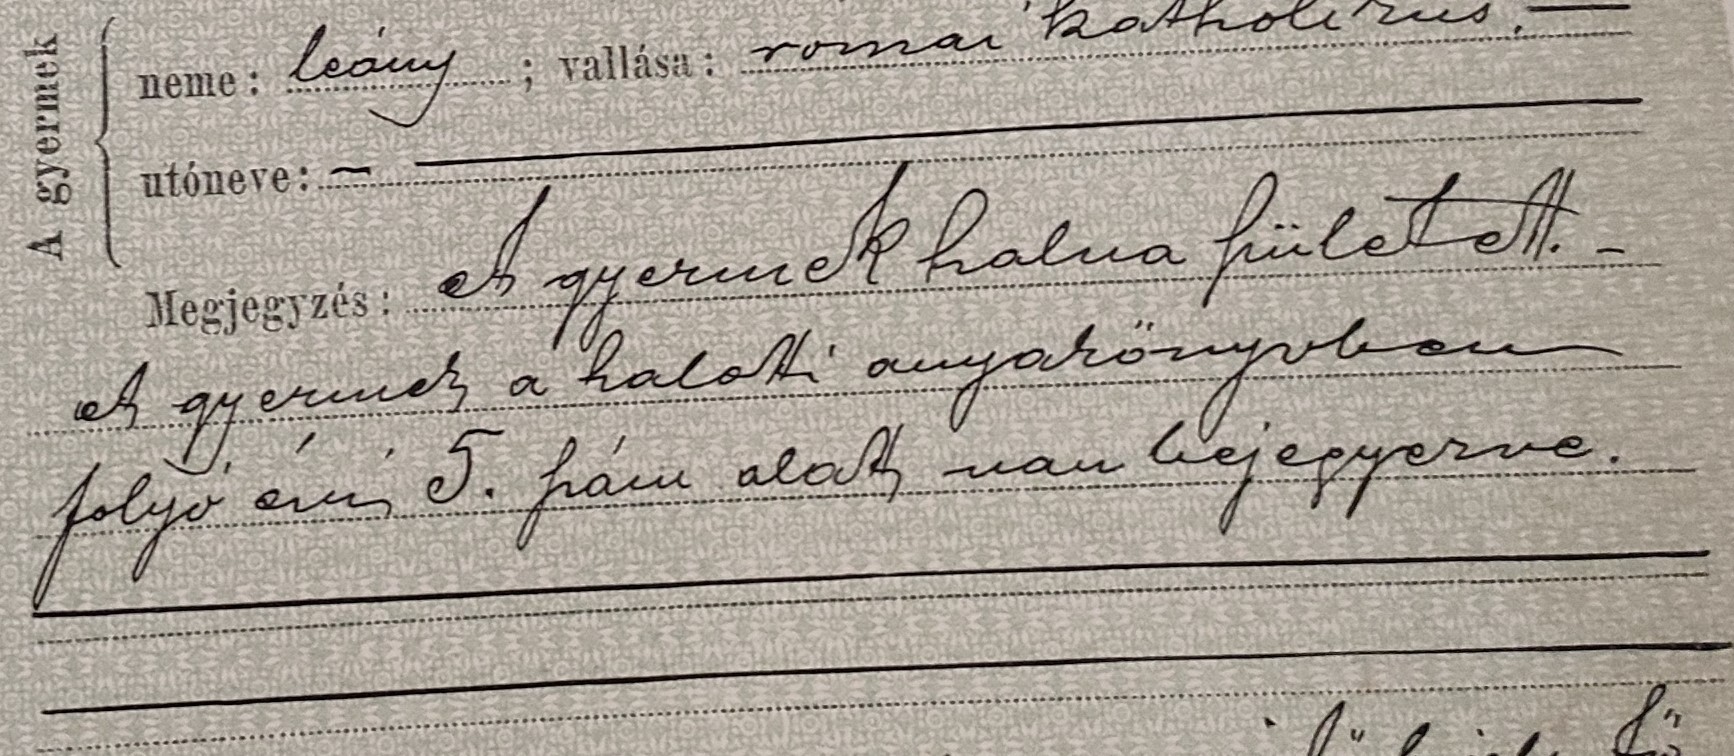 A gyermek
neme: leány; vallása: romai katholikus.—
utóneve: —
Megjegyzés: A gyermek halva született. -
A gyermek a halotti anyakönyvben
folyó évi 5. szám alatt van bejegyezve.